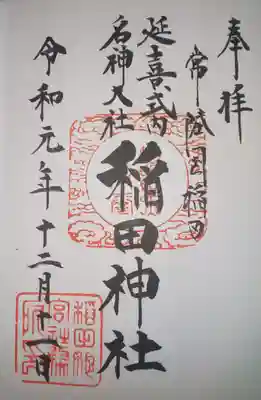 奉拝
常陸国稲田
延喜式内
名神大社
稲田神社
令和元年十二月十一日